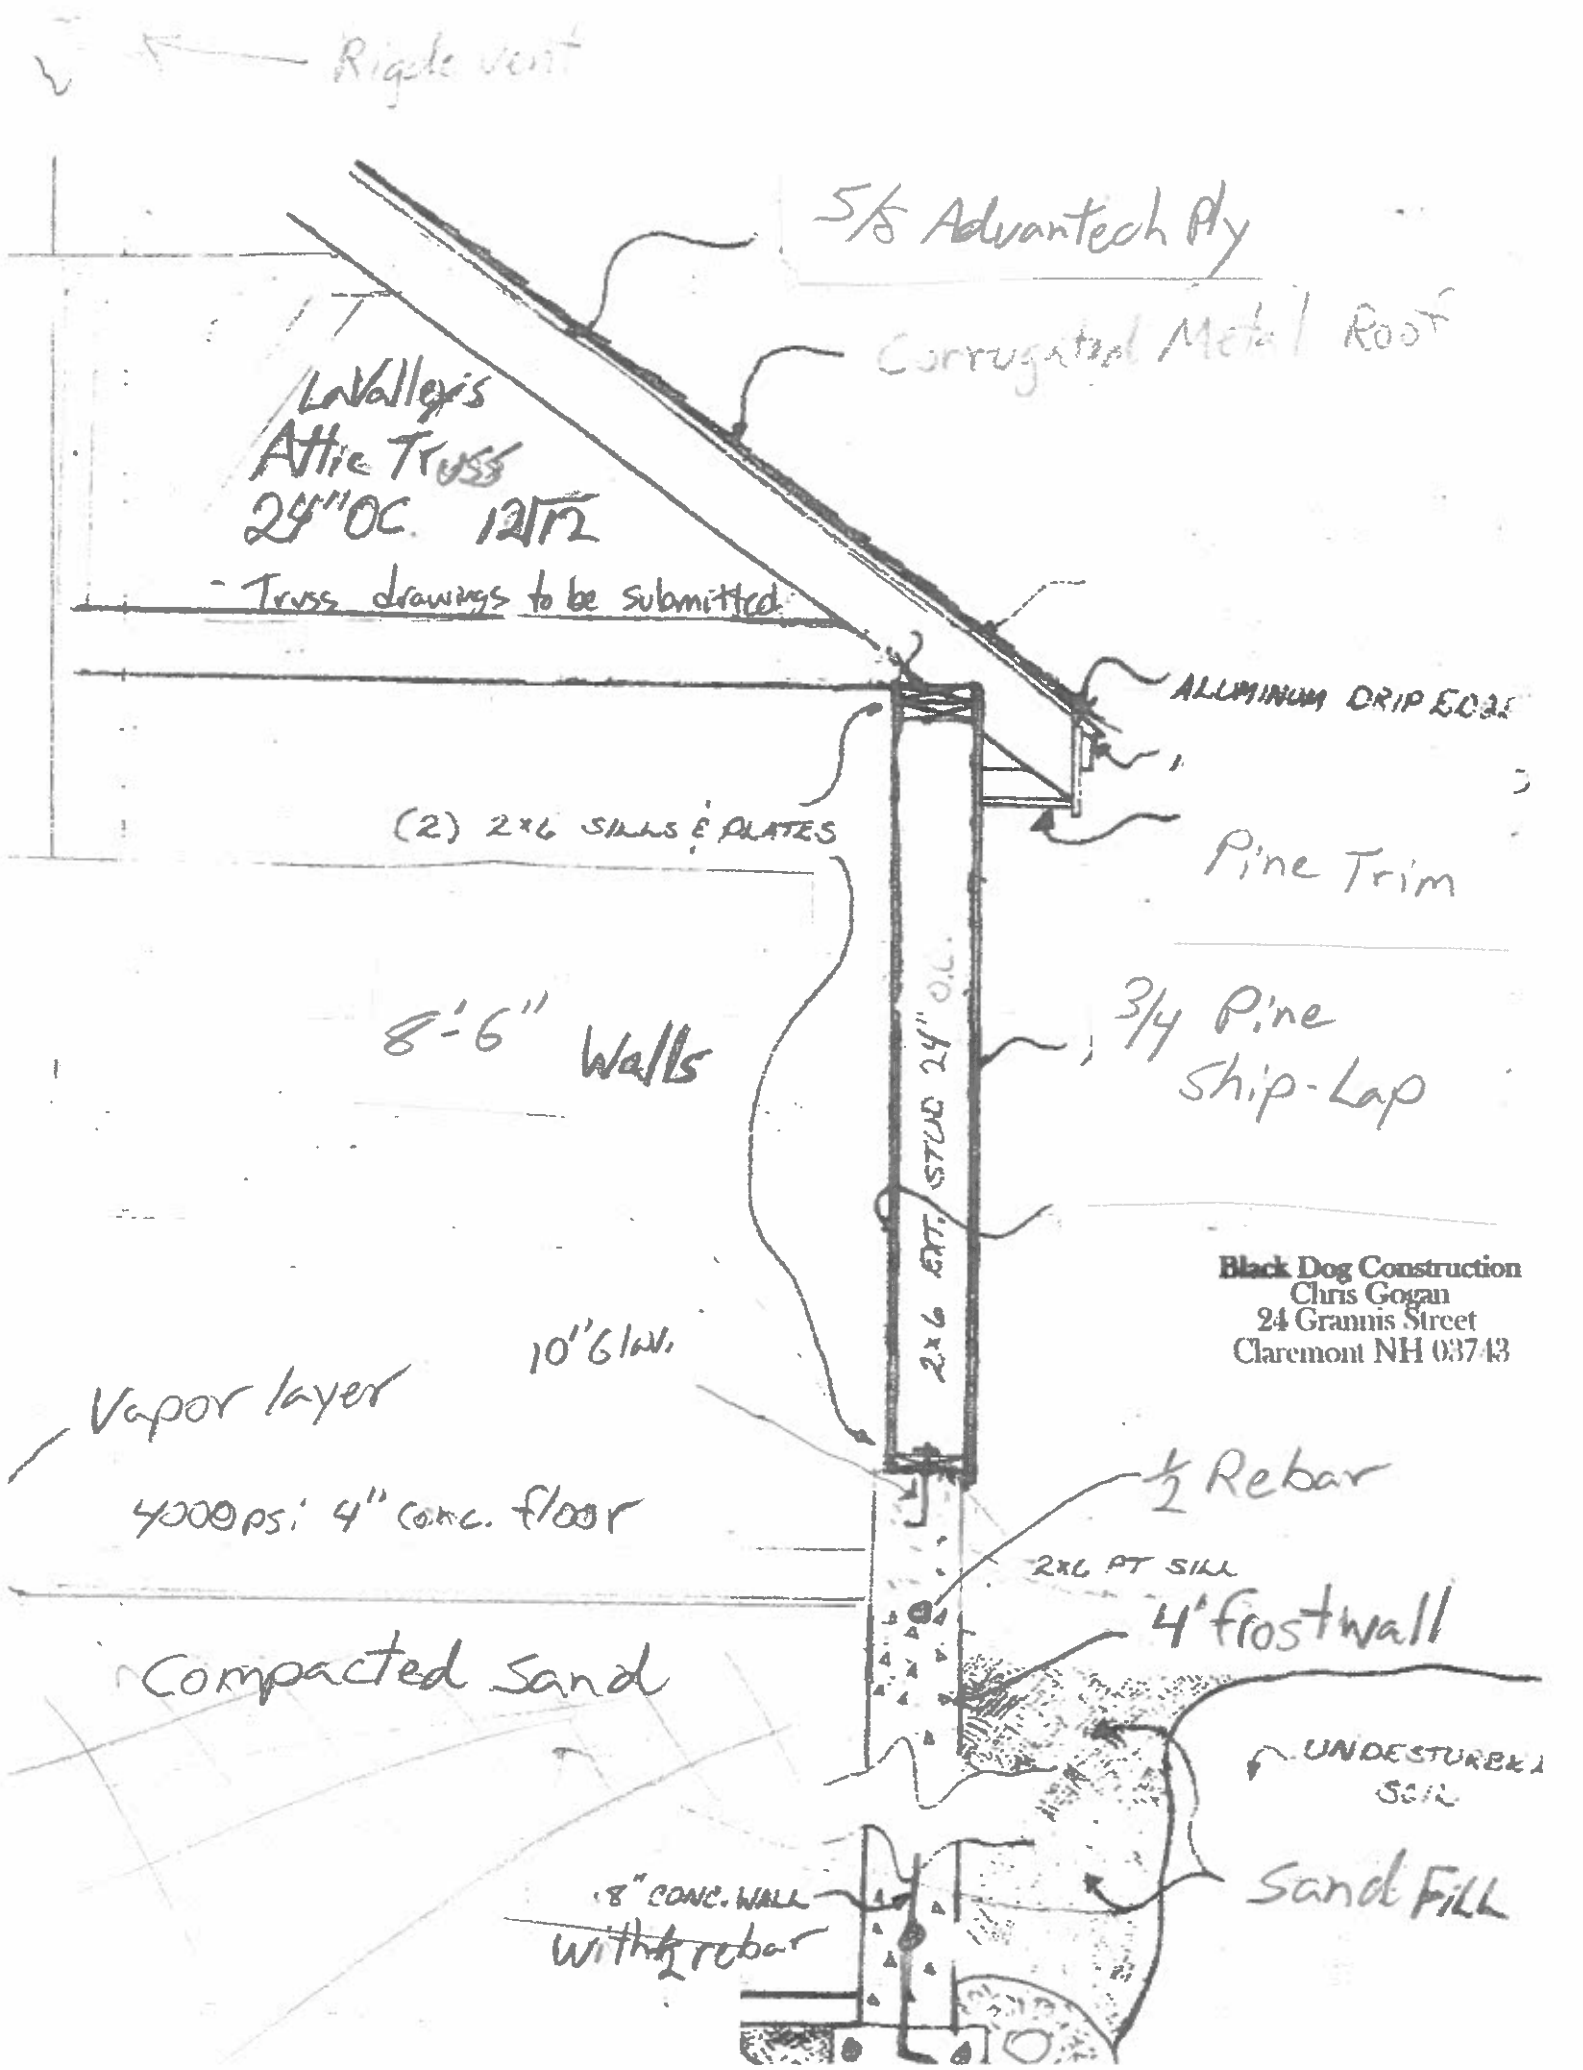 Rigde vent
5/8 Advantech Ply
Corrugated Metal Roof
LaValley's
Attic Truss
24" OC. 12/12
- Truss drawings to be submitted
ALUMINUM DRIP EDGE
(2) 2x6 SILLS & PLATES
Pine Trim
8'-6" Walls
3/4 Pine
Ship-Lap
2x6 EXT. STUD 24" O.C.
Black Dog Construction
Chris Gogan
24 Grannis Street
Claremont NH 03743
10" Galv.
Vapor layer
1/2 Rebar
4000psi 4" conc. floor
2x6 PT SILL
4' frostwall
Compacted Sand
UNDESTURBED
SOIL
Sand FILL
8" CONC. WALL
with 1/2 rebar